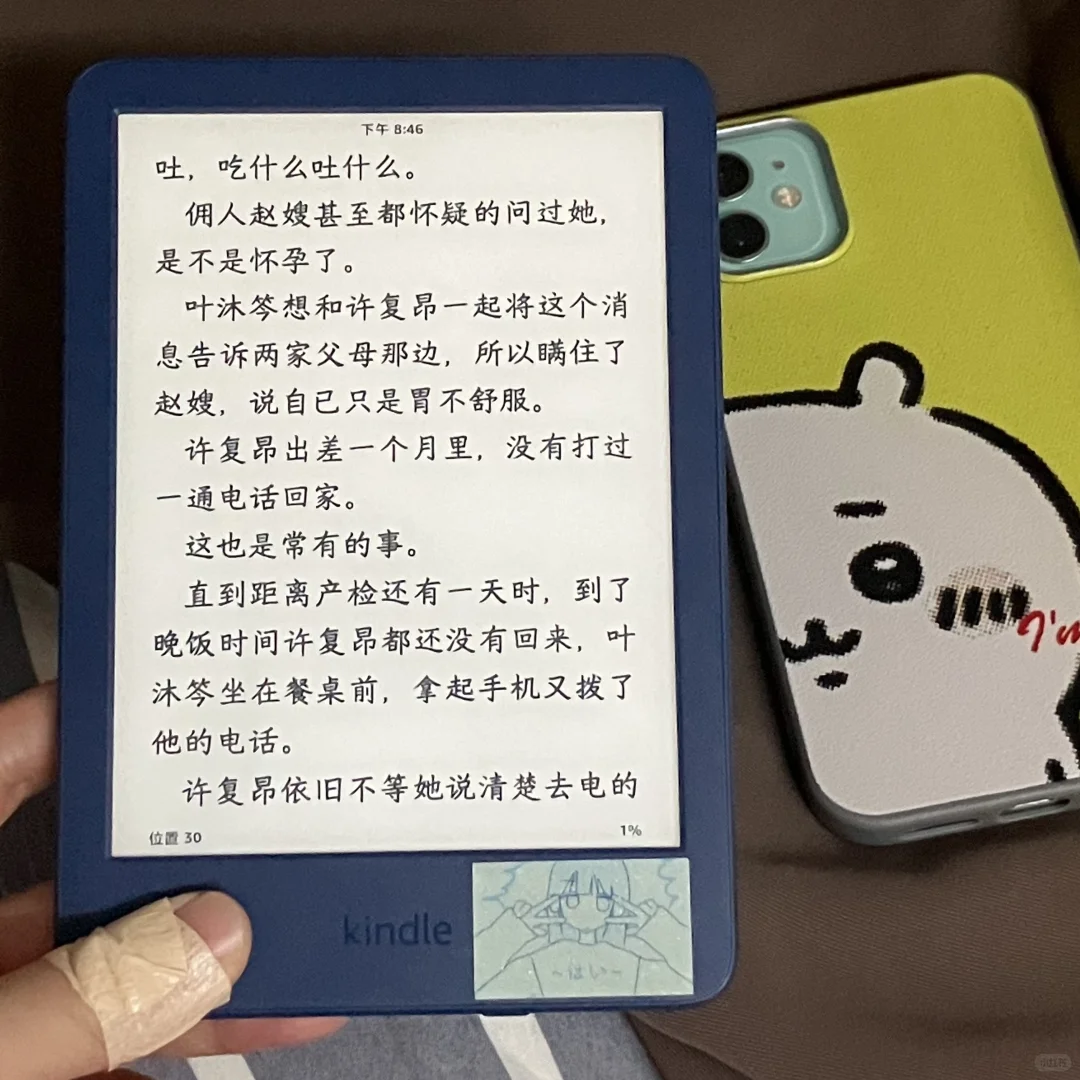 下午 8:46
吐，吃什么吐什么。
佣人赵嫂甚至都怀疑的问过她，
是不是怀孕了。
叶沐笒想和许复昂一起将这个消
息告诉两家父母那边，所以瞒住了
赵嫂，说自己只是胃不舒服。
许复昂出差一个月里，没有打过
一通电话回家。
这也是常有的事。
直到距离产检还有一天时，到了
晚饭时间许复昂都还没有回来，叶
沐笒坐在餐桌前，拿起手机又拨了
他的电话。
许复昂依旧不等她说清楚去电的
位置 30
1%
kindle
~はい~
I'm
小红书